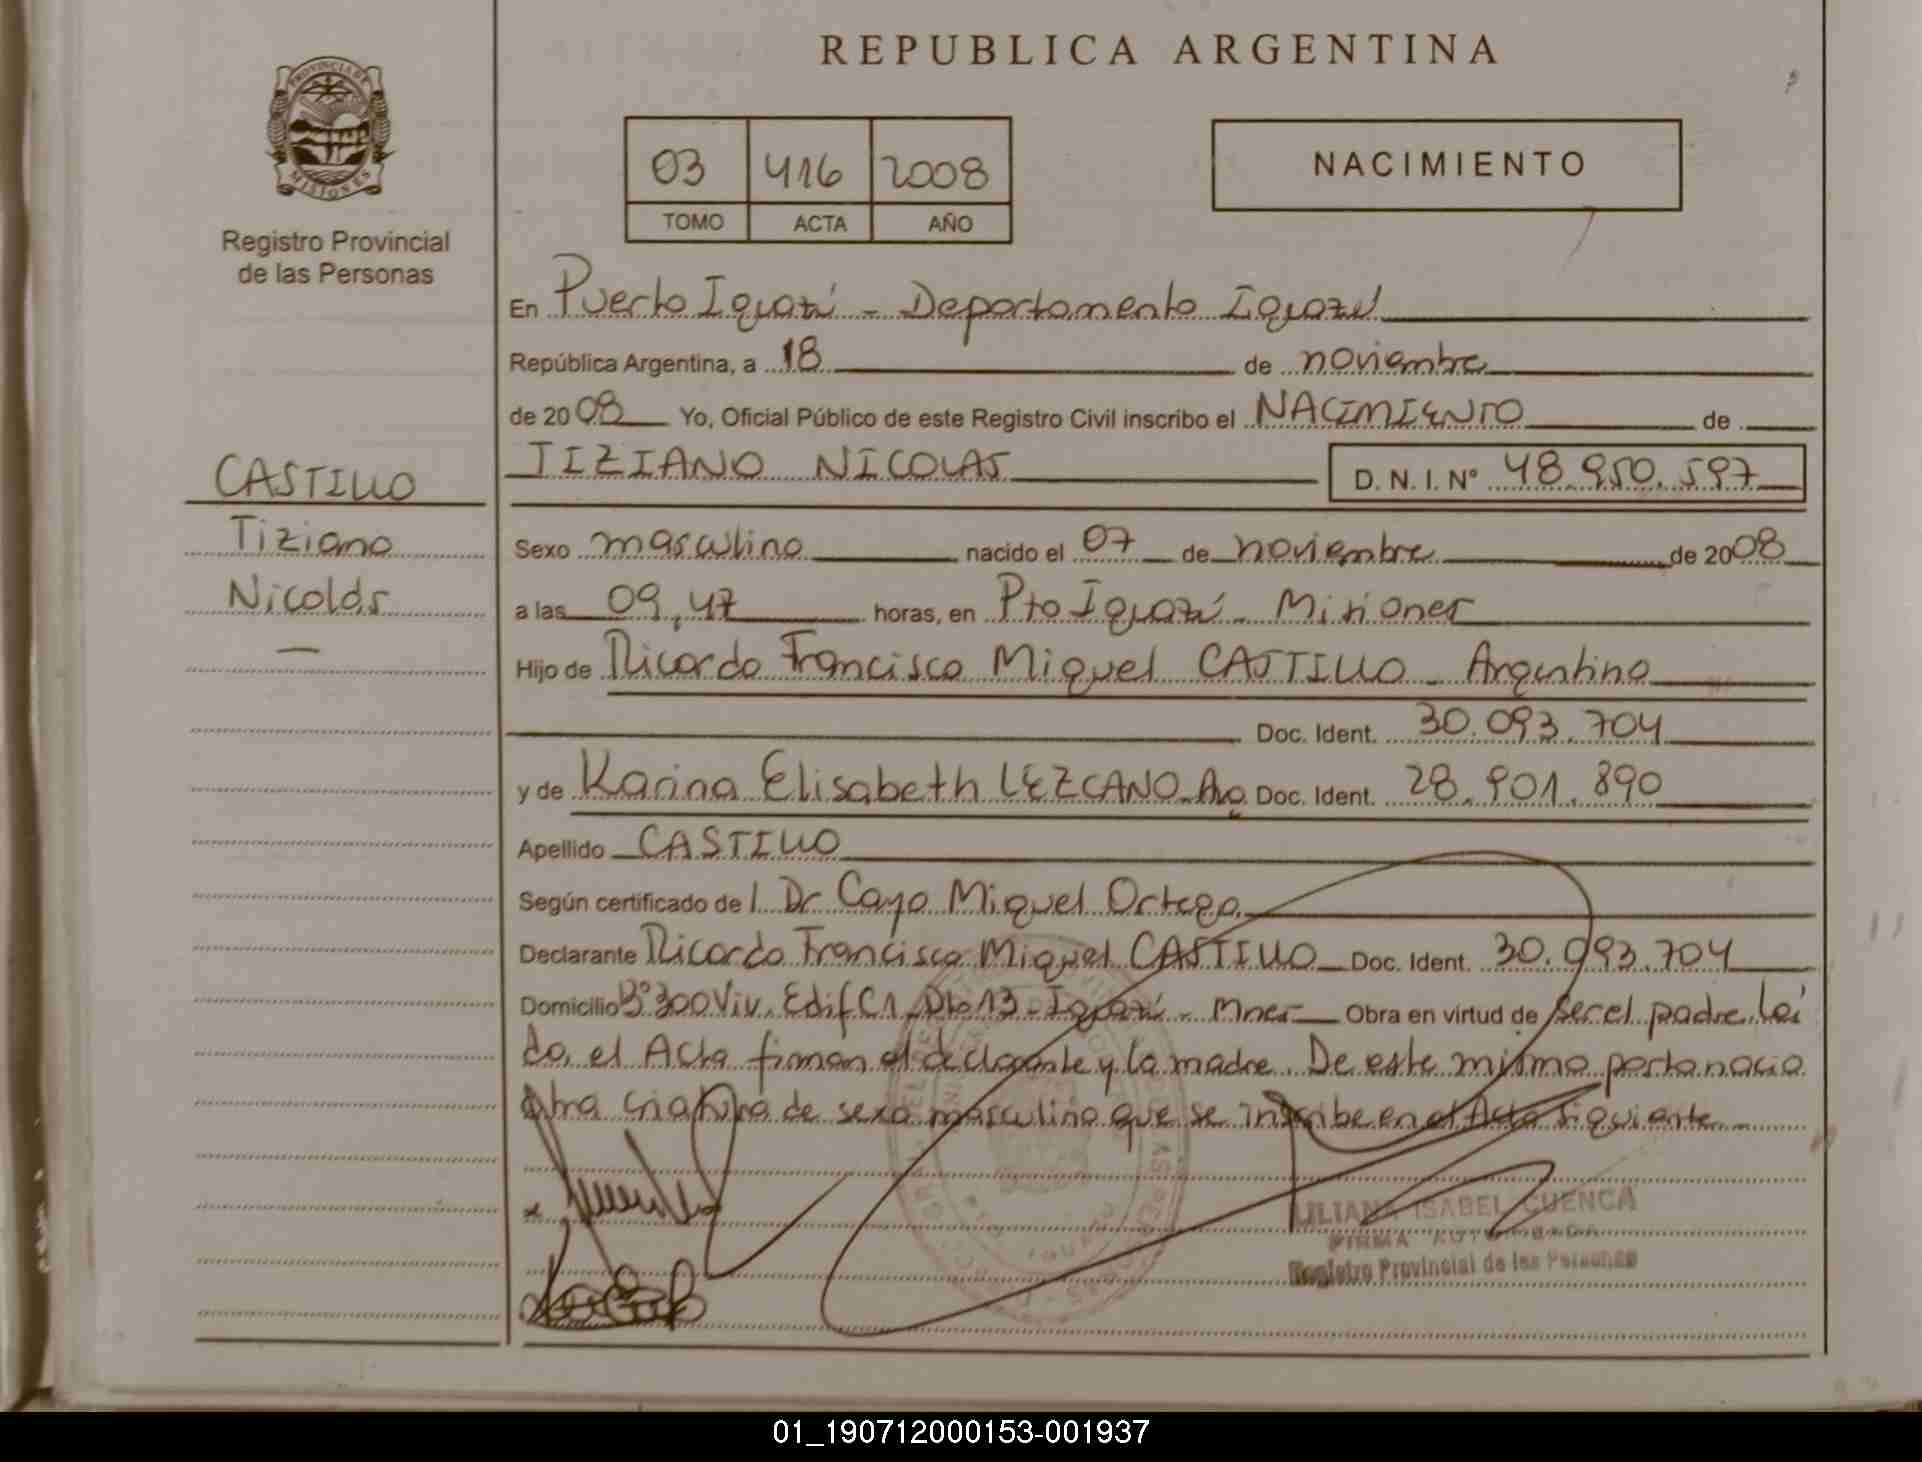 REPUBLICA ARGENTINA
PROVINCIA DE
MISIONES
Registro Provincial
de las Personas
03 416 2008
TOMO ACTA AÑO
NACIMIENTO
En Puerto Iguazú - Departamento Iguazú
República Argentina, a 18 de noviembre
de 2008 Yo, Oficial Público de este Registro Civil inscribo el NACIMIENTO de
TIZIANO NICOLAS D. N. I. N° 48.950.597
CASTILLO
Tiziano
Nicolás
Sexo masculino nacido el 07 de noviembre de 2008
a las 09,47 horas, en Pto Iguazú - Misiones
Hijo de Ricardo Francisco Miguel CASTILLO - Argentino
Doc. Ident. 30.093.704
y de Karina Elisabeth LEZCANO - Arg. Doc. Ident. 28.901.890
Apellido CASTILLO
Según certificado de l Dr Cayo Miguel Ortega
Declarante Ricardo Francisco Miguel CASTILLO - Doc. Ident. 30.093.704
Domicilio B° 300 Viv. Edif C1 - Dto 13 - Iguazú - Mnes - Obra en virtud de ser el padre. Leí
da, el Acta firman el declarante y la madre. De este mismo parto nació
otra criatura de sexo masculino que se inscribe en el Acta siguiente -
LILIANA ISABEL CUENCA
FIRMA AUTORIZADA
Registro Provincial de las Personas
01_190712000153-001937